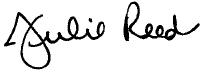 Julie Reed